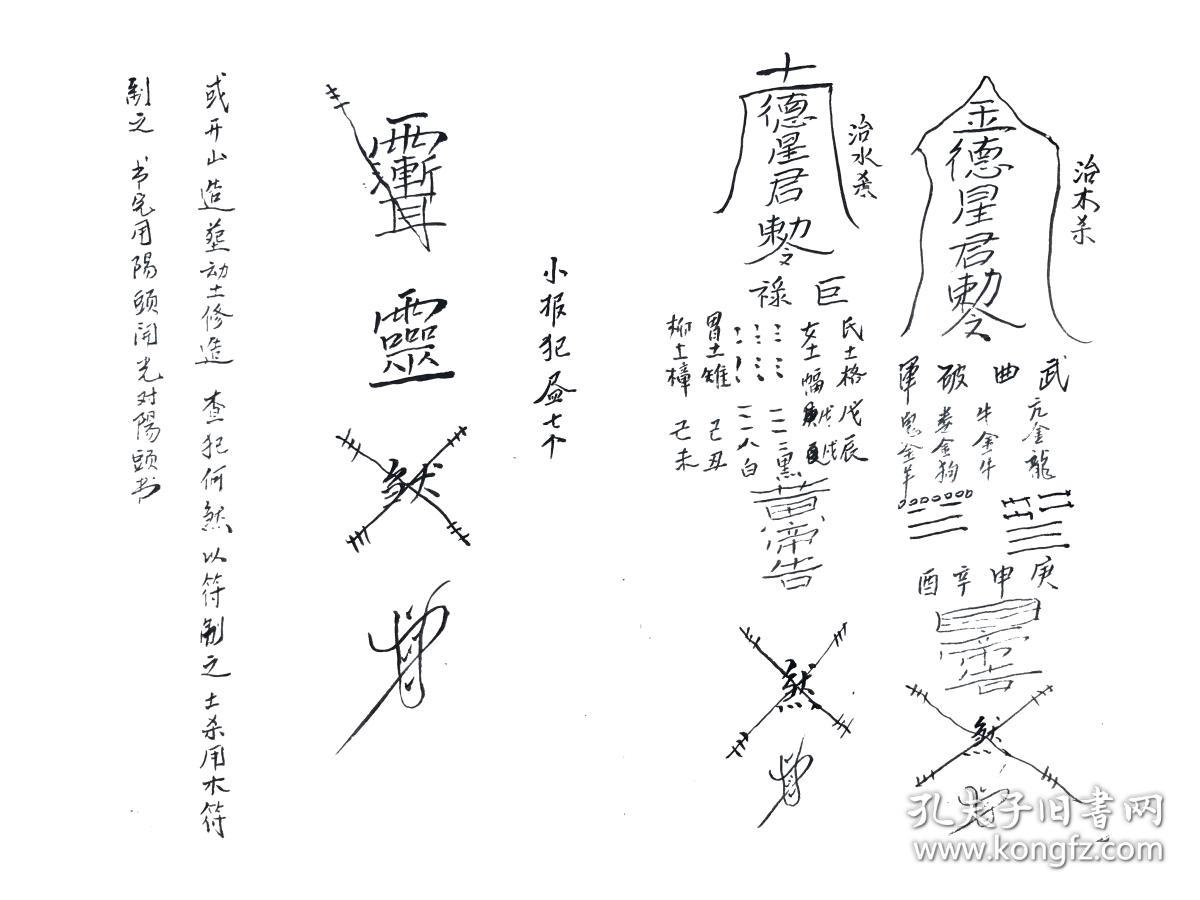 治木杀
金德星君勅令
武曲破軍
亢金龍
牛金牛
娄金狗
鬼金羊
庚申辛酉
帝告
煞
治水煞
土德星君勅令
巨禄
氏土格 戊辰
女土蝠 戊戌
二黑
八白
胃土雉 己丑
柳土樟 己未
黄帝告
煞
小报犯
七个
靈
煞
或开山造茔动土修造 查犯何煞以符制之 土杀用木符
制之 书完用陽頭开光对陽頭书
孔夫子旧书网
www.kongfz.com